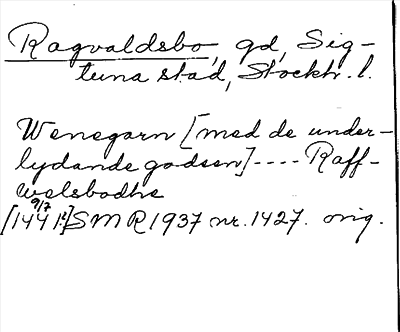 Ragvaldsbo, gd, Sig-
tuna stad, Stockh. l.
Wenegarn [med de under-
lydande godsen] ---- Raff-
welsbodhe
9/7
[1441:] SMR 1937 nr. 1427. orig.